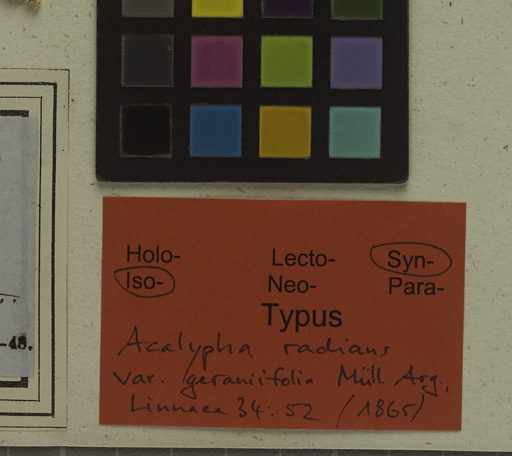 -48.
Holo- Lecto- Syn-
Iso- Neo- Para-
Typus
Acalypha radians
var. geraniifolia Müll Arg.,
Linnaea 34: 52 (1865)